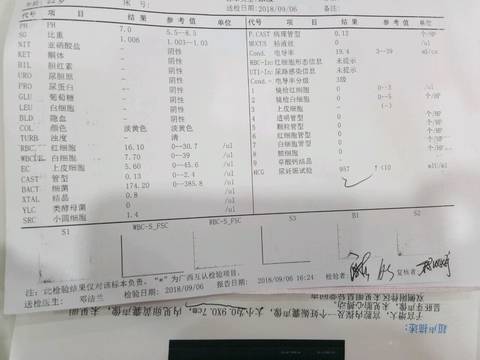 送检日期:2018/09/06 备注:
代号 项目 结果 参考值 单位 代号 项目 结果 参考值 单位
PH PH 7.0 5.5--8.5
SG 比重 1.006 1.003--1.03
NIT 亚硝酸盐 阴性
KET 酮体 阴性
BIL 胆红素 阴性
URO 尿胆原 阴性
PRO 尿蛋白 阴性
GLU 葡萄糖 阴性
LEU 白细胞 阴性
BLD 隐血 阴性
COL 颜色 淡黄色 淡黄色
TURB 浊度 清
RBC 红细胞 16.10 0--30.7 /ul
WBC 白细胞 7.70 0--39 /ul
EC 上皮细胞 5.60 0--45.6 /ul
CAST 管型 0.13 0--2.4 /ul
BACT 细菌 174.20 0--385.8 /ul
XTAL 结晶 0.8 /ul
YLC 类酵母菌 0 /ul
SRC 小圆细胞 1.4 /ul
P.CAST 病理管型 0.13 个/HP
MUCUS 粘液丝 0 /ul
Cond. 电导率 19.4 3--39 mS/cm
RBC-Inf 红细胞形态信息 未提示
UTI-Inf 尿路感染信息 未提示
Cond.- 电导率分级 3级
1 镜检红细胞 0--3 /ul
2 镜检白细胞 0--5 个/HP
3 上皮细胞 (-)
4 透明管型 个/HP
5 颗粒管型 个/HP
6 红细胞管型 个/HP
7 白细胞管型 个/HP
8 脓细胞 个/HP
9 草酸钙结晶
HCG 尿妊娠试验 957 ↑ (10 mIU/ml
S3 WBC-S_FSC WBC-S_FSC S3 B1 S2
注:此检验结果仅对该标本负责。"*"为广西互认检验项目,
检验日期:2018/09/06 报告日期:2018/09/06 16:24 检验者: 复核者:
送检医生: 邓法兰
超声描述: